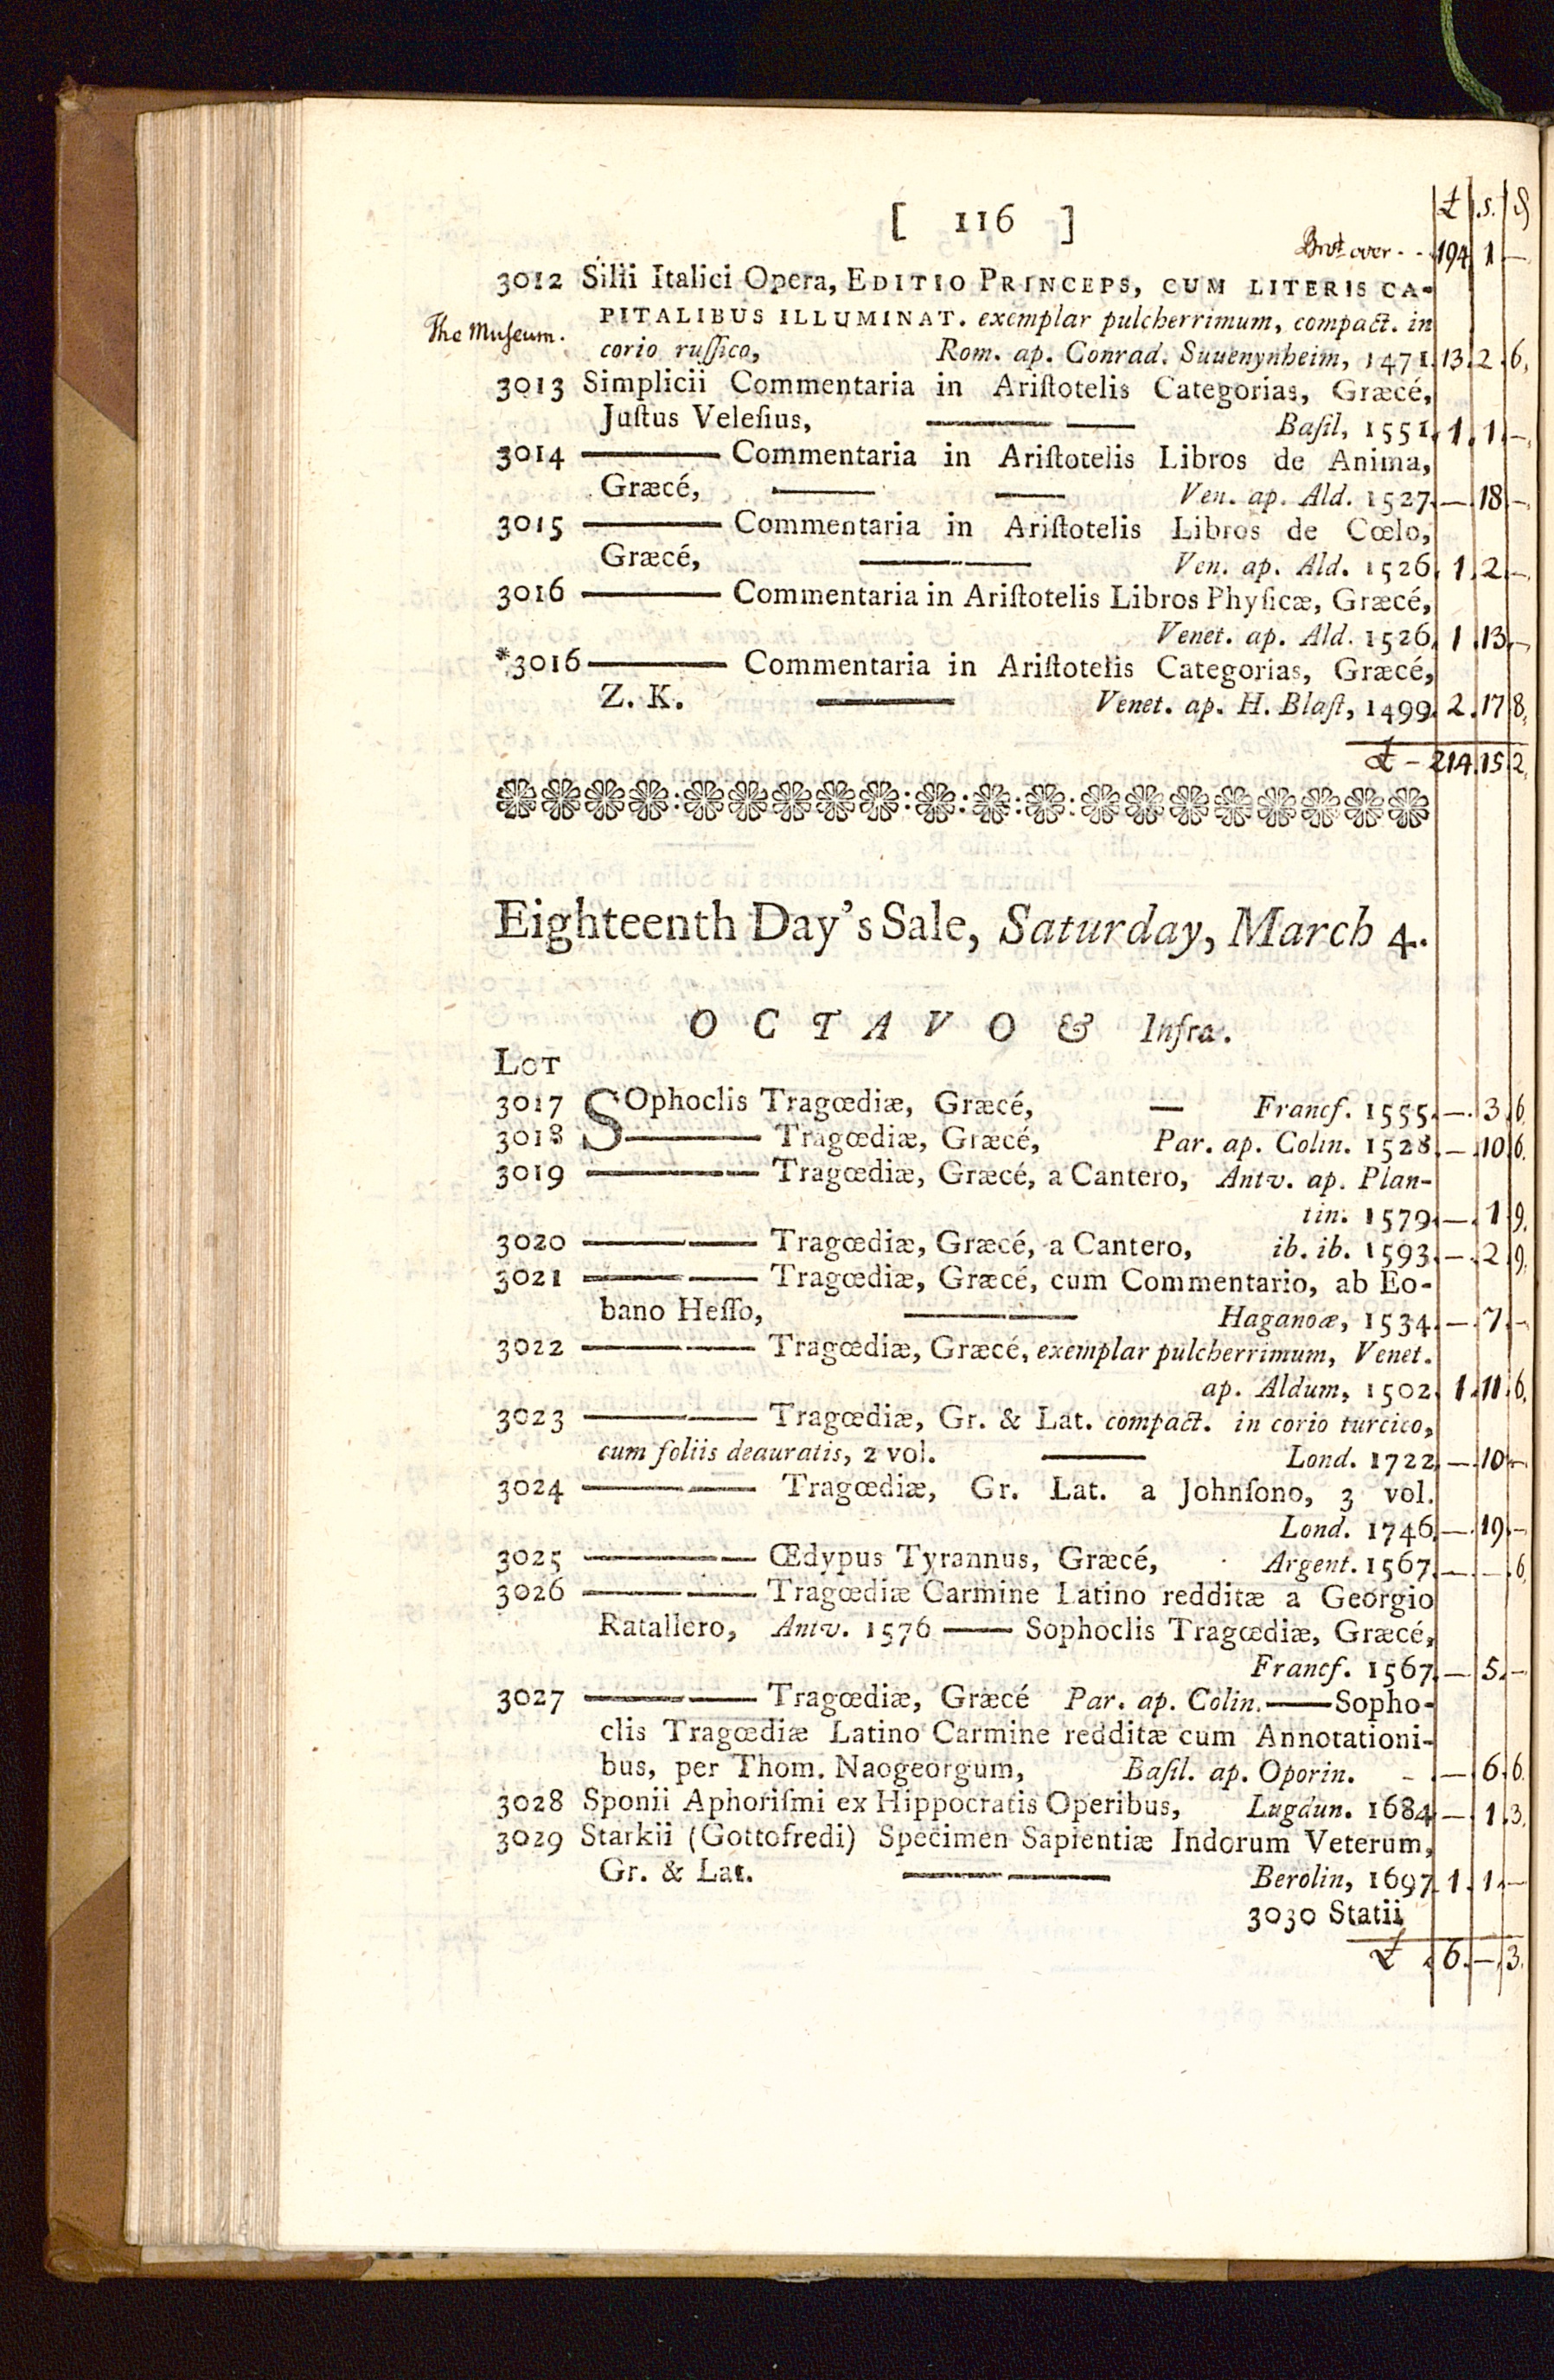 [ 116 ]
£ s. d
Brot over - - 194 1 —
3012 Silii Italici Opera, EDITIO PRINCEPS, CUM LITERIS CA-
PITALIBUS ILLUMINAT. exemplar pulcherrimum, compact. in
The Museum. corio ruſſico, Rom. ap. Conrad. Suuenynheim, 1471. 13. 2. 6,
3013 Simplicii Commentaria in Ariſtotelis Categorias, Græcé,
Juſtus Veleſius, —— — Baſil, 1551. 1. 1. —
3014 ——— Commentaria in Ariſtotelis Libros de Anima,
Græcé, —— — Ven. ap. Ald. 1527. —. 18 —
3015 ——— Commentaria in Ariſtotelis Libros de Cœlo,
Græcé, —— — Ven. ap. Ald. 1526. 1. 2. —
3016 ——— Commentaria in Ariſtotelis Libros Phyſicæ, Græcé,
Venet. ap. Ald. 1526. 1. 13. —
*3016 ——— Commentaria in Ariſtotelis Categorias, Græcé,
Z. K. ——— Venet. ap. H. Blaſt, 1499. 2. 17 8,
£ - 214. 15 2,
Eighteenth Day's Sale, Saturday, March 4.
OCTAVO & Infra.
LOT
3017 SOphoclis Tragœdiæ, Græcé, — Francf. 1555. —. 3. 6
3018 ——— Tragœdiæ, Græcé, Par. ap. Colin. 1528. —. 10 6.
3019 —— — Tragœdiæ, Græcé, a Cantero, Antv. ap. Plan-
tin. 1579. —. 1 9.
3020 —— — Tragœdiæ, Græcé, a Cantero, ib. ib. 1593. —. 2 9.
3021 —— — Tragœdiæ, Græcé, cum Commentario, ab Eo-
bano Heſſo, —— — Haganoæ, 1534. —. 7. —
3022 —— — Tragœdiæ, Græcé, exemplar pulcherrimum, Venet.
ap. Aldum, 1502. 1. 11. 6,
3023 —— — Tragœdiæ, Gr. & Lat. compact. in corio turcico,
cum foliis deauratis, 2 vol. —— Lond. 1722. —. 10 —
3024 —— — Tragœdiæ, Gr. Lat. a Johnſono, 3 vol.
Lond. 1746. —. 19. —
3025 —— — Œdypus Tyrannus, Græcé, Argent. 1567. — — . 6,
3026 —— — Tragœdiæ Carmine Latino redditæ a Georgio
Ratallero, Antv. 1576 —— Sophoclis Tragœdiæ, Græcé,
Francf. 1567. —. 5. —
3027 —— — Tragœdiæ, Græcé Par. ap. Colin. —— Sopho-
clis Tragœdiæ Latino Carmine redditæ cum Annotationi-
bus, per Thom. Naogeorgum, Baſil. ap. Oporin. - . — 6. 6.
3028 Sponii Aphoriſmi ex Hippocratis Operibus, Lugdun. 1684 —. 1. 3.
3029 Starkii (Gottofredi) Specimen Sapientiæ Indorum Veterum,
Gr. & Lat. —— — Berolin, 1697. 1. 1. —
3030 Statii
£ . 6. — . 3.